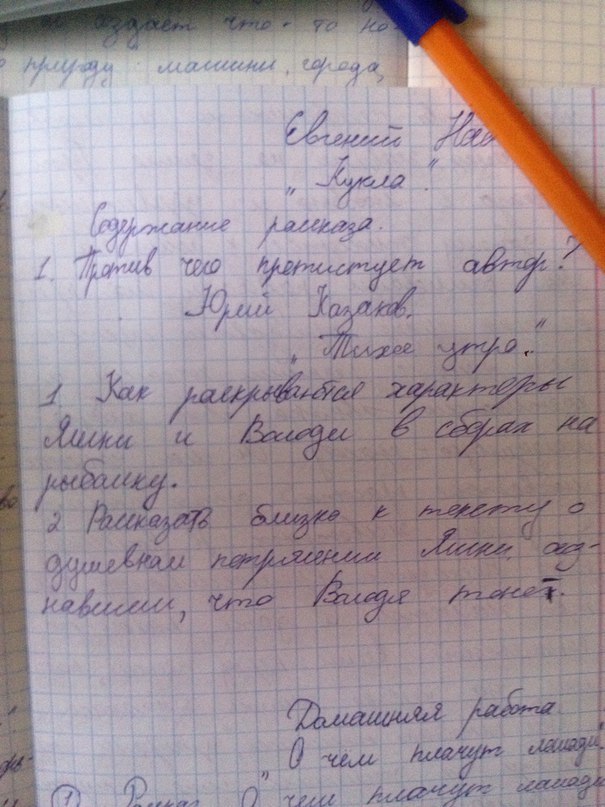 оздаёт что-то но-
природу: машины, города,
Евгений Нос
"Кукла".
Содержание рассказа.
1. Против чего протистует автор?
Юрий Казаков.
"Тихое утро".
1 Как раскрываются характеры
Яшки и Володи в сборах на
рыбалку.
2 Рассказать близко к тексту о
душевном потрясении Яшки,
что Володя тонет.
Домашняя работа.
О чём плачут лошади".
① Рассказ "О чём плачут лошади